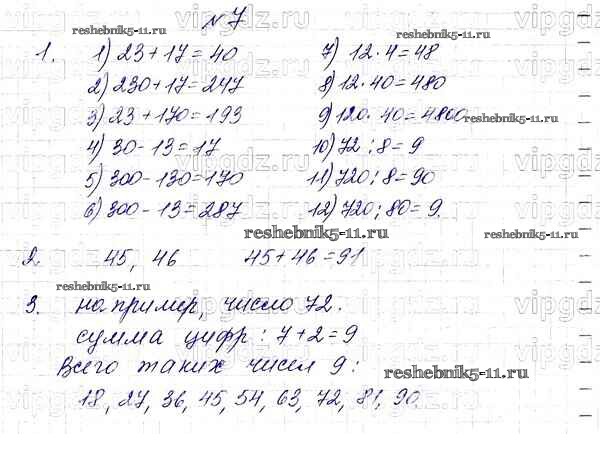 № 7
1. 1) 23 + 17 = 40
2) 230 + 17 = 247
3) 23 + 170 = 193
4) 30 - 13 = 17
5) 300 - 130 = 170
6) 300 - 13 = 287
7) 12 · 4 = 48
8) 12 · 40 = 480
9) 120 · 40 = 4800
10) 72 : 8 = 9
11) 720 : 8 = 90
12) 720 : 80 = 9.
2. 45, 46 45 + 46 = 91
3. например, число 72.
сумма цифр : 7 + 2 = 9
Всего таких чисел 9 :
18, 27, 36, 45, 54, 63, 72, 81, 90
reshebnik5-11.ru
reshebnik5-11.ru
reshebnik5-11.ru
reshebnik5-11.ru
reshebnik5-11.ru
reshebnik5-11.ru
reshebnik5-11.ru
vipgdz.ru